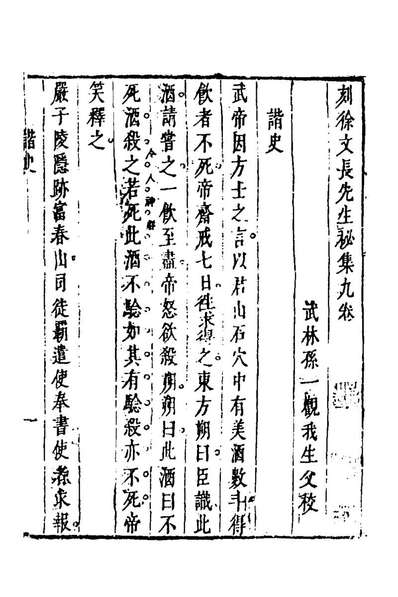 刻徐文長先生祕集九卷
武林孫一觀我生父校
諧史
武帝因方士之言以君山石穴中有美酒數斗得
飲者不死帝齋戒七日往求得之東方朔曰臣識此
酒請嘗之一飲至盡帝怒欲殺朔朔曰此酒曰不
死酒殺之若死此酒不驗如其有驗殺亦不死帝
今人神醉
笑釋之
嚴子陵隱跡富春山司徒霸遣使奉書使者求報
諧史
一